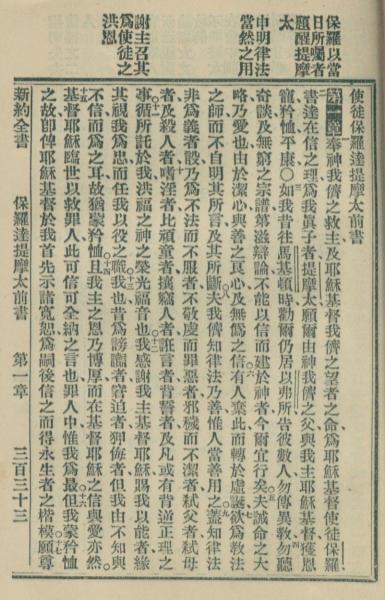 保羅以當
日所囑者
題醒提摩
太
申明律法
當然之用
謝主召其
爲使徒之
洪恩
使徒保羅達提摩太前書
第一章 奉神我儕之救主及耶穌基督我儕之望者之命爲耶穌基督使徒保羅
書達在信之理爲我眞子者提摩太願爾由神我儕之父與我主耶穌基督獲恩
寵矜恤平康○三如我昔往馬基頓時勸爾仍居以弗所告彼數人勿傳異敎四勿聽
奇談及無窮之宗譜第滋辯論不能以信而建於神者今爾宜行矣○五夫誡命之大
略乃愛也由於潔心與善之良心及無僞之信○六有人棄此而轉於虛誕○七欲爲敎法
之師而不自明其所言及其所斷○八夫我儕知律法乃善惟人當善用之○九蓋知律法
非爲義者設乃爲不法而不服者不敬虔而罪惡者邪穢而不潔者弒父者弒母
者及殺人者○十嗜淫者比頑童者攘竊人者誑言者背誓者及凡或有背逆正理之
事○十一循所託於我洪福之神之榮光福音也○十二我感謝我主基督耶穌賜我以能者緣
其視我爲忠而任我以役之職○十三我也昔爲謗讟者窘迫者狎侮者但我由不知與
不信而爲之耳故猶蒙矜恤○十四且我主之恩乃博厚而在基督耶穌之信與愛亦然
○十五基督耶穌臨世以救罪人此可信可全納之言也罪人中惟我爲最○十六但我蒙矜恤
之故卽俾耶穌基督於我首先示諸寬恕爲嗣後信之而得永生者之楷模○十七願尊
新約全書 保羅達提摩太前書 第一章 三百三十三